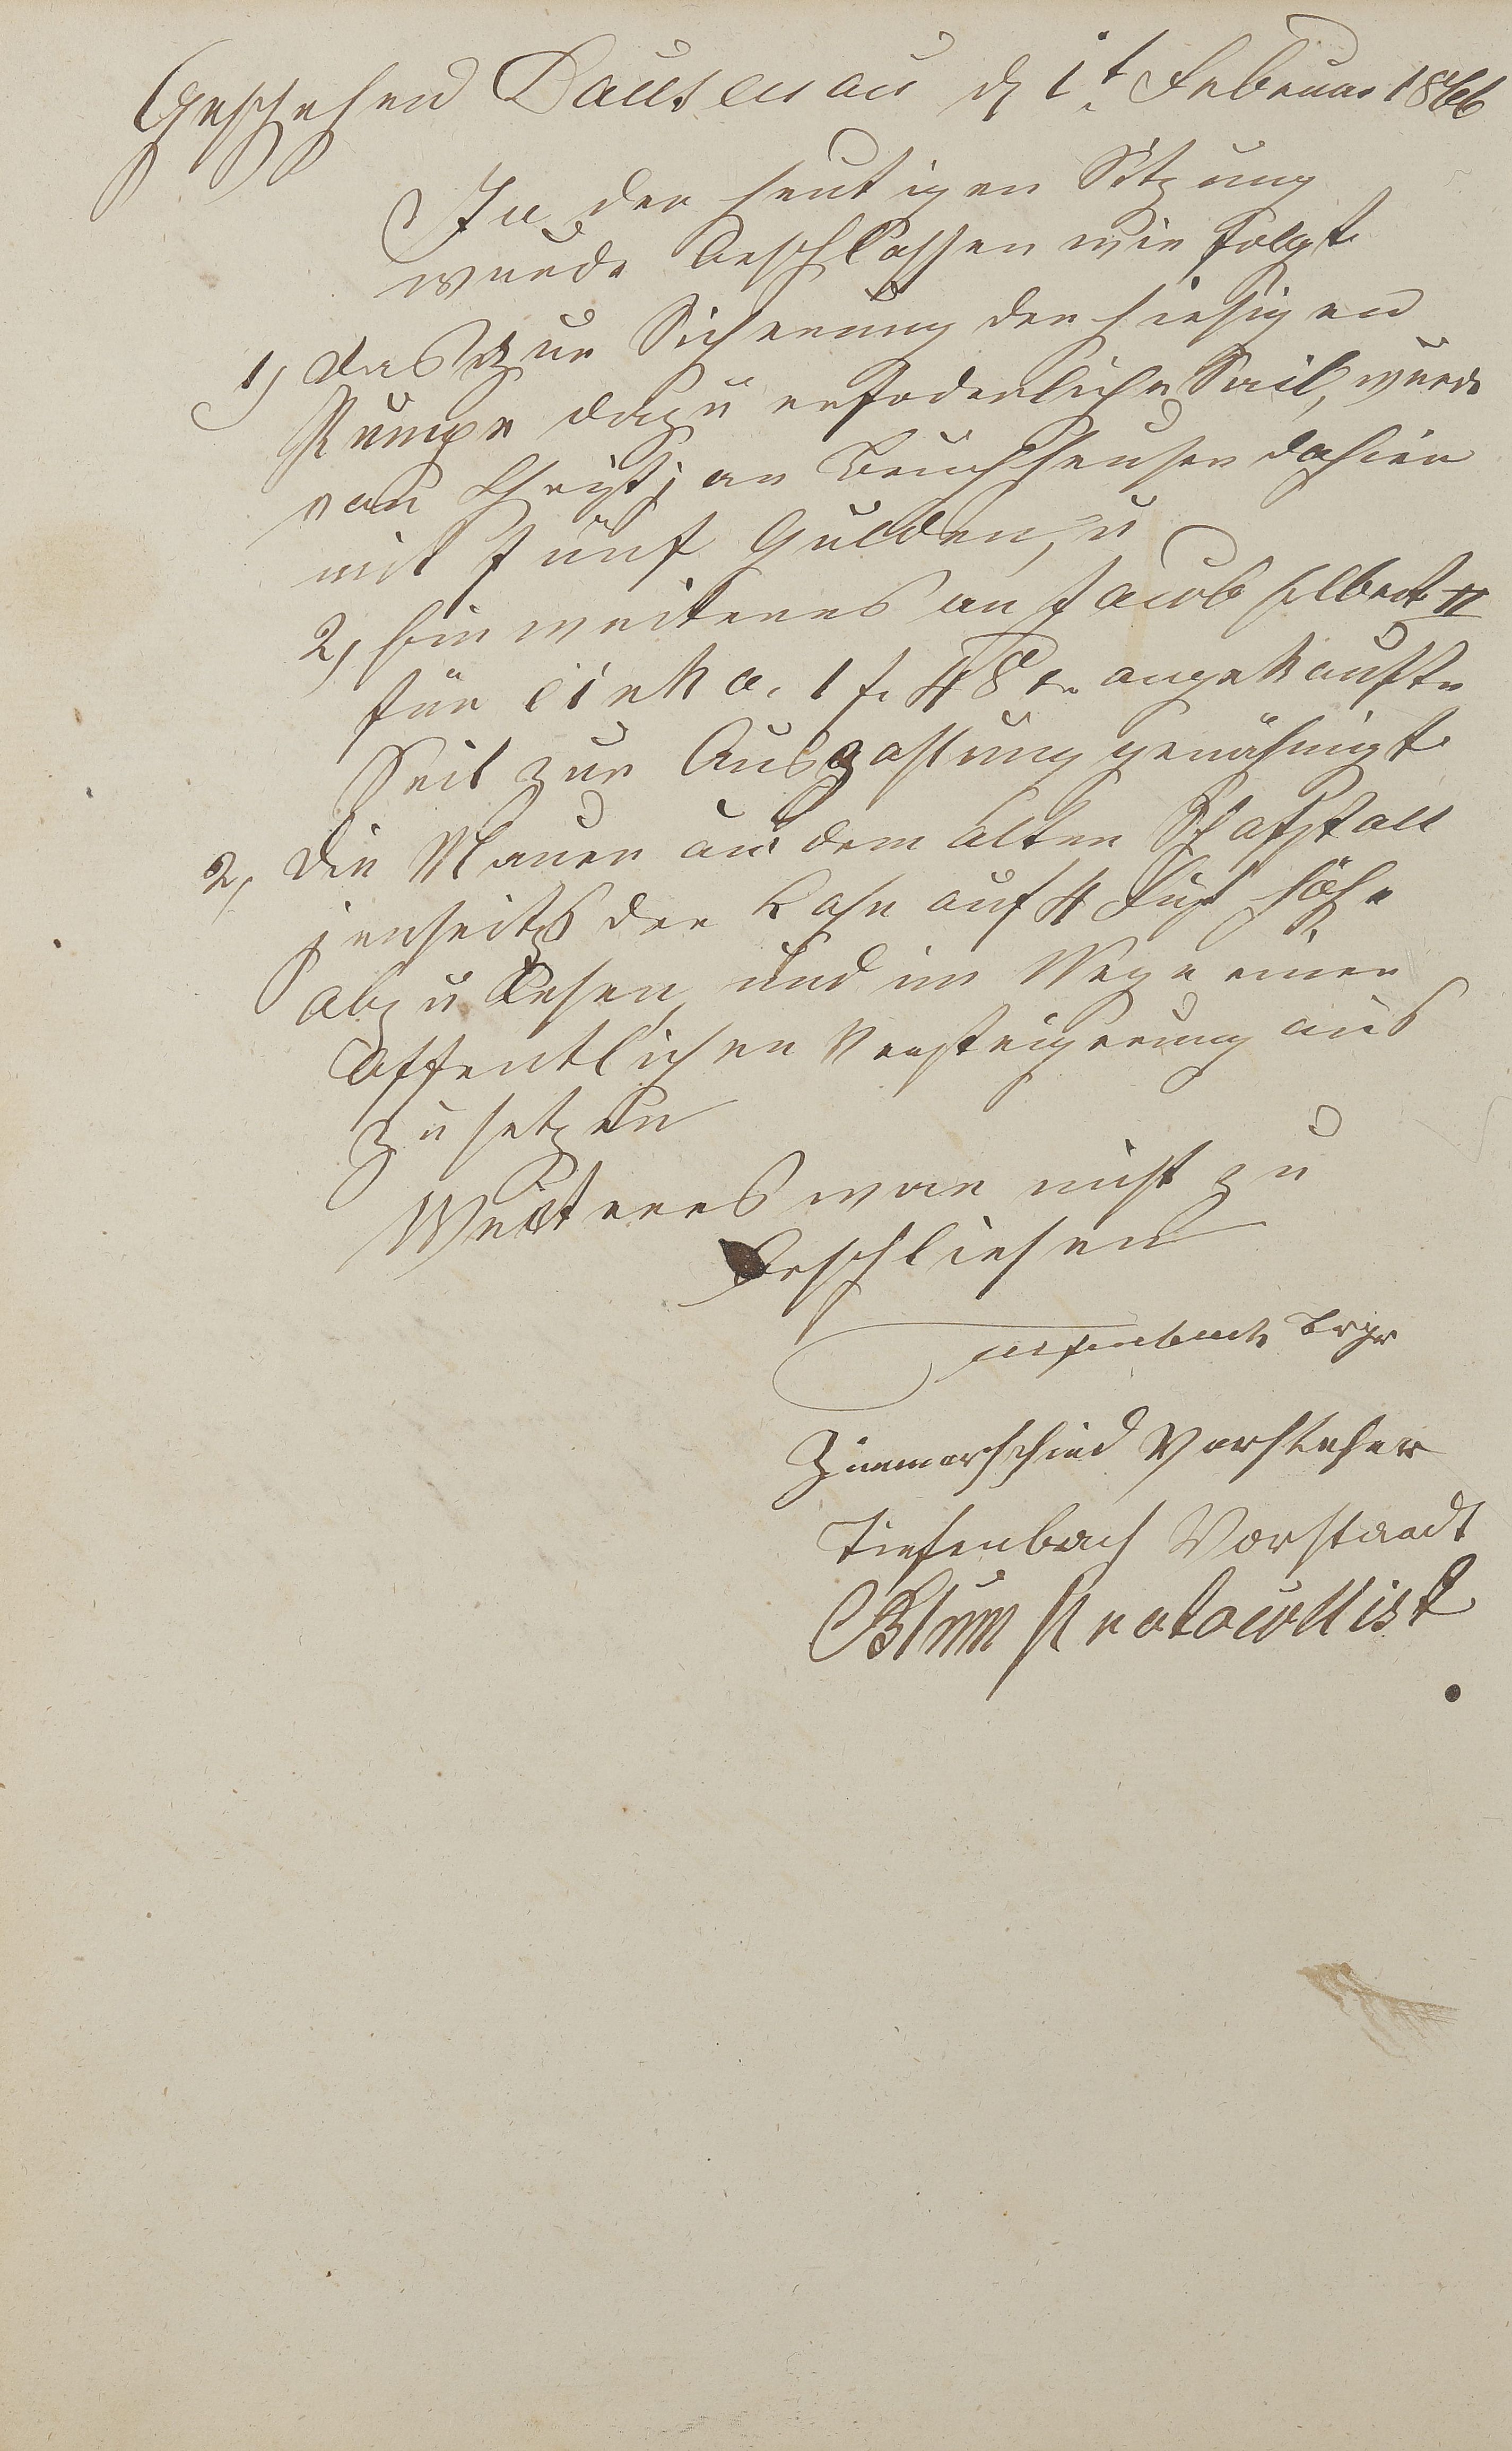 Geschehen Dausenau d 1t Februar 1866
In der heutigen Sitzung
wurde beschlossen wie folgt
1, das zur Sicherung der hiesigen
Pumpe dazu erfoderliche Sail, wurde
von Christjan Bruchheuser dahier
mit fünf Gulden, u
2, hin weiteres an Jacob Elbert II
für cirka. 1 f. 48 xr angekaufte
Seil zur Auszahlung genähmigt
2, Die Mauer an dem alten Schafstall
jenseitz der Lahn auf 4 Fuß höhe
abzulesen, und im Wege einer
öffentlichen Versteigerung aus
zu setzen
Weiteres war nicht zu
beschliesen
Tiefenbach Brgr
Zimmerschied Vorsteher
Tiefenbach Vorstandt
Blum Protocollist